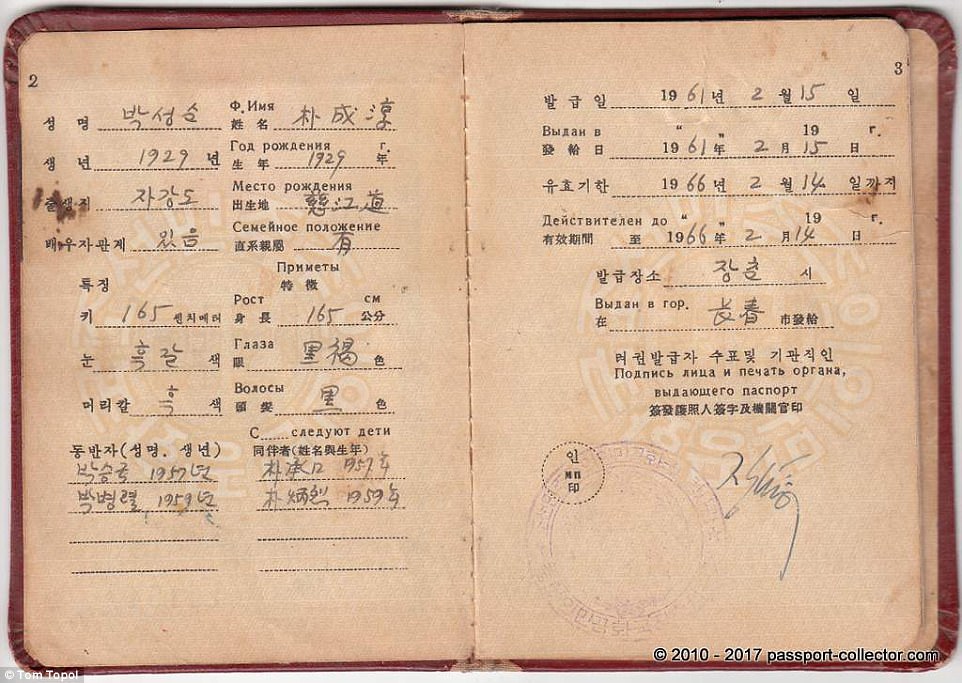 2
성 명 박성순
Ф. Имя
姓 名 朴成淳
생 년 1929 년
Год рождения г.
生 年 1929 年
출생지 자강도
Место рождения
出生地 慈江道
배우자관계 있음
Семейное положение
直系親屬 有
특징
Приметы
特徵
키 165 센치메터
Рост см
身長 165 公分
눈 흑갈 색
Глаза
眼 黑褐 色
머리칼 흑 색
Волосы
頭髮 黑 色
동반자(성명. 생년)
С.... следуют дети
同伴者(姓名與生年)
박승국 1957년
朴承 1957年
박병렬 1959년
朴炳烈 1959年
3
발급일 1961년 2월 15일
Выдан в " „ 19 г.
發給日 1961年 2月 15日
유효기한 1966년 2월 14일까지
Действителен до " „ 19 г.
有效期間 至 1966年 2月 14日
발급장소 장춘 시
Выдан в гор.
在 長春 市發給
려권발급자 수표및 기관적인
Подпись лица и печать органа,
выдающего паспорт
簽發護照人簽字及機關官印
인
мп
印
© Tom Topol
© 2010 - 2017 passport-collector.com